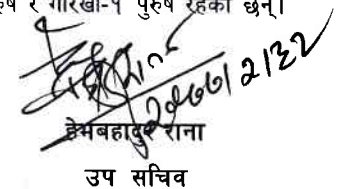 रुष र गोरखा-१ पुरुष रहेका छन्।
२०७७।२।३२
हेमबहादुर राना
उप सचिव